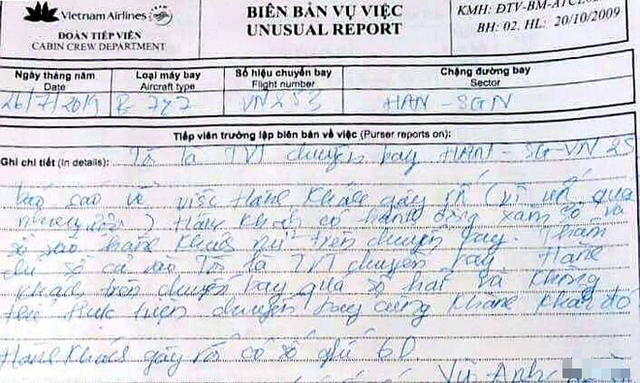 Vietnam Airlines
ĐOÀN TIẾP VIÊN
CABIN CREW DEPARTMENT
BIÊN BẢN VỤ VIỆC
UNUSUAL REPORT
KMH: ĐTV-BM-ATCL02
BH: 02. HL: 20/10/2009
Ngày tháng năm
Date
Loại máy bay
Aircraft type
Số hiệu chuyến bay
Flight number
Chặng đường bay
Sector
26/7/2019 B 787 VN 253 HAN - SGN
Tiếp viên trưởng lập biên bản về việc (Purser reports on):
Ghi chi tiết (In details): Tôi là TVT chuyến bay HAN - SG - VN 25
báo cáo về việc Hành Khách gây rối (vì uống quá
nhiều rượu) Hành Khách có hành động xàm sỡ và
sờ vào hành khách nữ trên chuyến bay. Thậm
chí sờ cả vào Tôi là TVT chuyến bay. Hành
khách trên chuyến bay quá sợ hãi và không
thể thực hiện chuyến bay cùng hành khách đó
Hành Khách gây rối có số ghế 6D
Vũ Anh